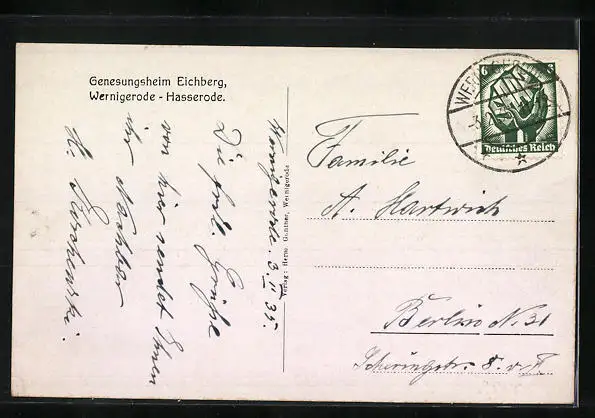 Genesungsheim Eichberg,
Wernigerode - Hasserode.
Wernigerode. 3. II 35.
Die frdl. Grüße
von hier sendet Ihnen
ihr Nachbar
H.
Verlag: Herm. Günther, Wernigerode
6
Deutsches Reich
Familie
A. Hartwich
Berlin N. 31
Scheringstr. 8. v.